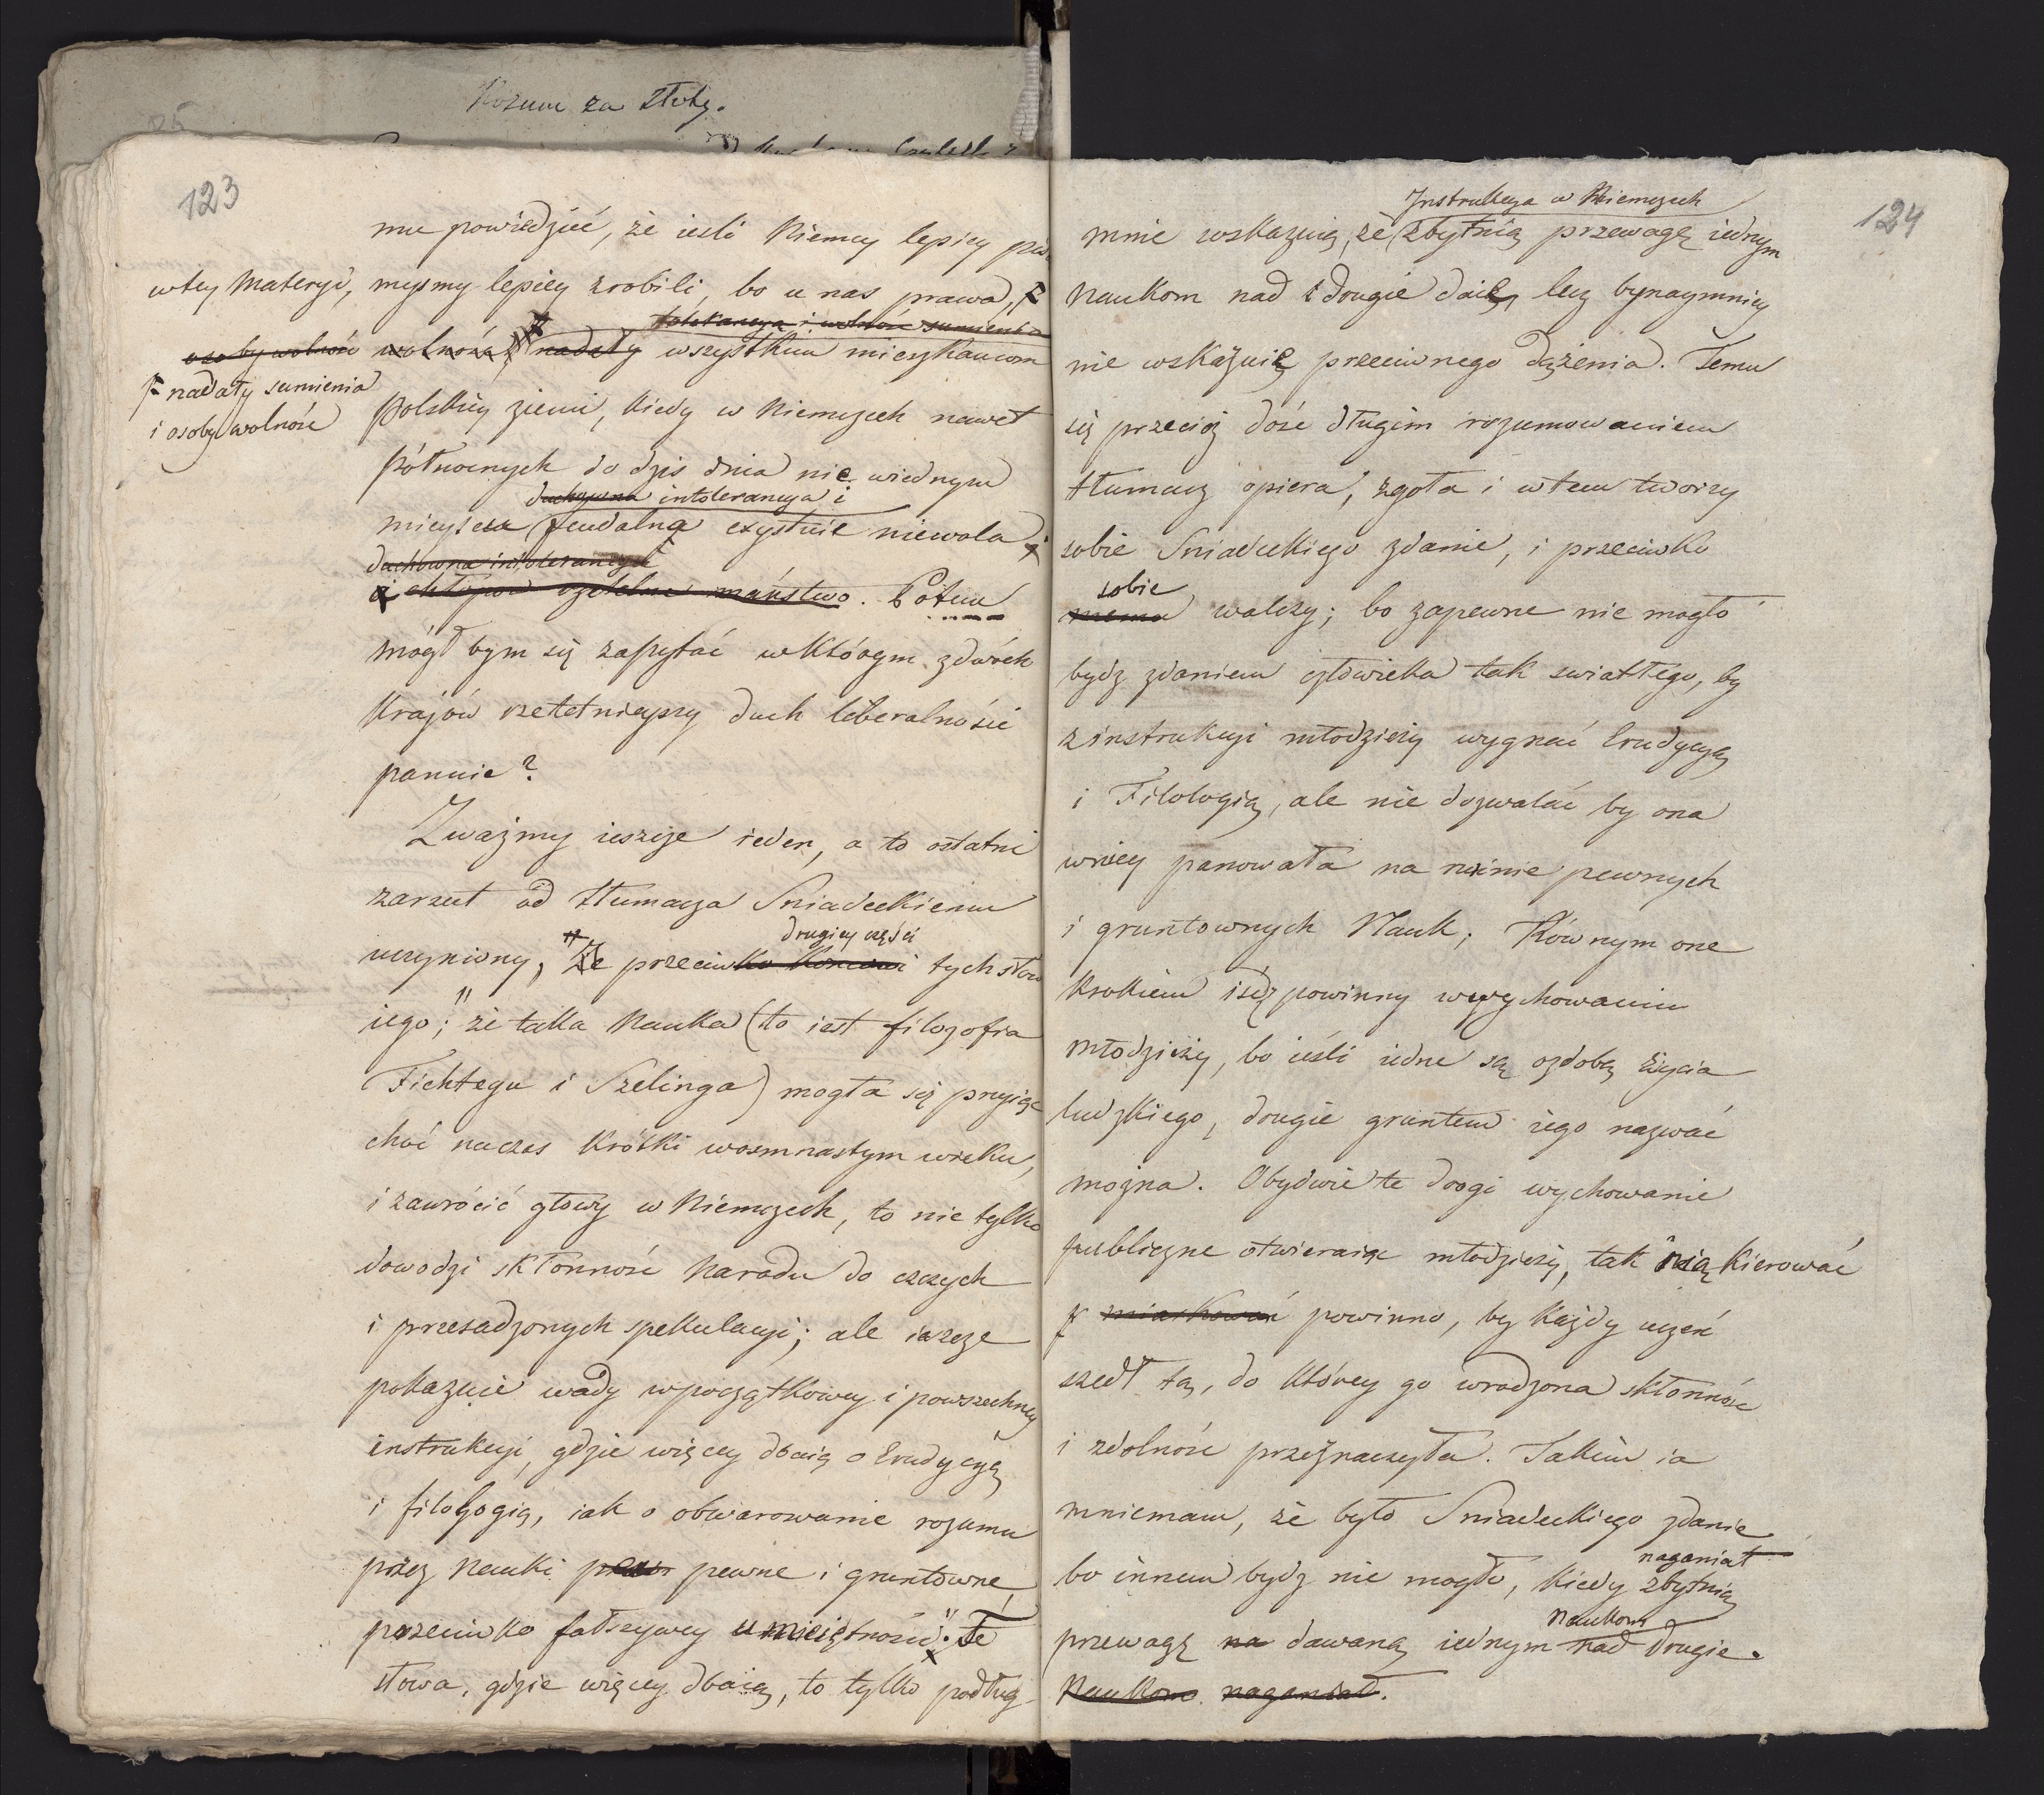 Rozum za złoty.
123
mu powiedzieć, że ieśli Niemcy lepiey
w tey Materyi, myśmy lepiey zrobili, bo u nas prawa, F
tolerancya i wolność sumienia
osoby wolność wolność nadały wszystkim mieszkańcom
F nadały sumienia
i osoby wolność
Polskiey ziemi, kiedy w Niemczech nawet
Północnych do dziś dnia nie w iednym
duchowna intolerancya i
mieyscu feudalna exystuie niewola
duchowna intolerancya
i chłopów poddaństwo. Potem
mógł bym się zapytać w którym z dwóch
Krajów rzetelnieyszy duch liberalności
panuie?
Zważmy ieszcze ieden, a to ostatni
zarzut od tłumacza Sniadeckiemu
drugiey części
uczyniony, że przeciwko końcowi tych słów
iego; "że taka Nauka (to iest filozofia
Fichtego i Szelinga) mogła się przyiąć
choć na czas krótki w osmnastym wieku,
i zawrócić głowy w Niemczech, to nie tylko
dowodzi skłonność Narodu do czczych
i przesadzonych spekulacyi; ale ieszcze
pokazuie wady w początkowey i powszechney
instrukcyi, gdzie więcey dbaią o Erudycyą
i filologią, iak o obwarowanie rozumu
przez Nauki pewne i gruntowne,
przeciwko fałszywey umieiętności". Te
słowa, gdzie więcey dbaią, to tylko podług
124
Instrukcya w Niemczech
mnie wskazuią, że zbytnią przewagę iednym
Naukom nad drugie daie, lecz bynaymniey
nie wskazuie przeciwnego dążenia. Temu
się przeciez dość długim rozumowaniem
tłumacz opiera, zgoła i w tem tworzy
sobie Sniadeckiego zdanie, i przeciwko
sobie
niemu walczy; bo zapewne nie mogło
bydz zdaniem człowieka tak swiatłego, by
z instrukcyi młodzieży wygnać Erudycyą
i Filologią, ale nie dozwalać by ona
w niey panowała na ruinie pewnych
i gruntownych Nauk; Równym one
krokiem iść powinny w wychowaniu
młodzieży, bo ieśli iedne są ozdobą życia
ludzkiego, drugie gruntem iego nazwać
można. Obydwie te drogi wychowanie
publiczne otwieraiąc młodzieży, tak nią kierować
F miarkować powinno, by każdy uczeń
szedł tą, do którey go wrodzona skłonność
i zdolność przeznaczyła. Takim ia
mniemam, że było Sniadeckiego zdanie
naganiał
bo innem bydz nie mogło, kiedy zbytnią
Naukom
przewagę na dawaną iednym nad drugie.
Naukom naganiał.